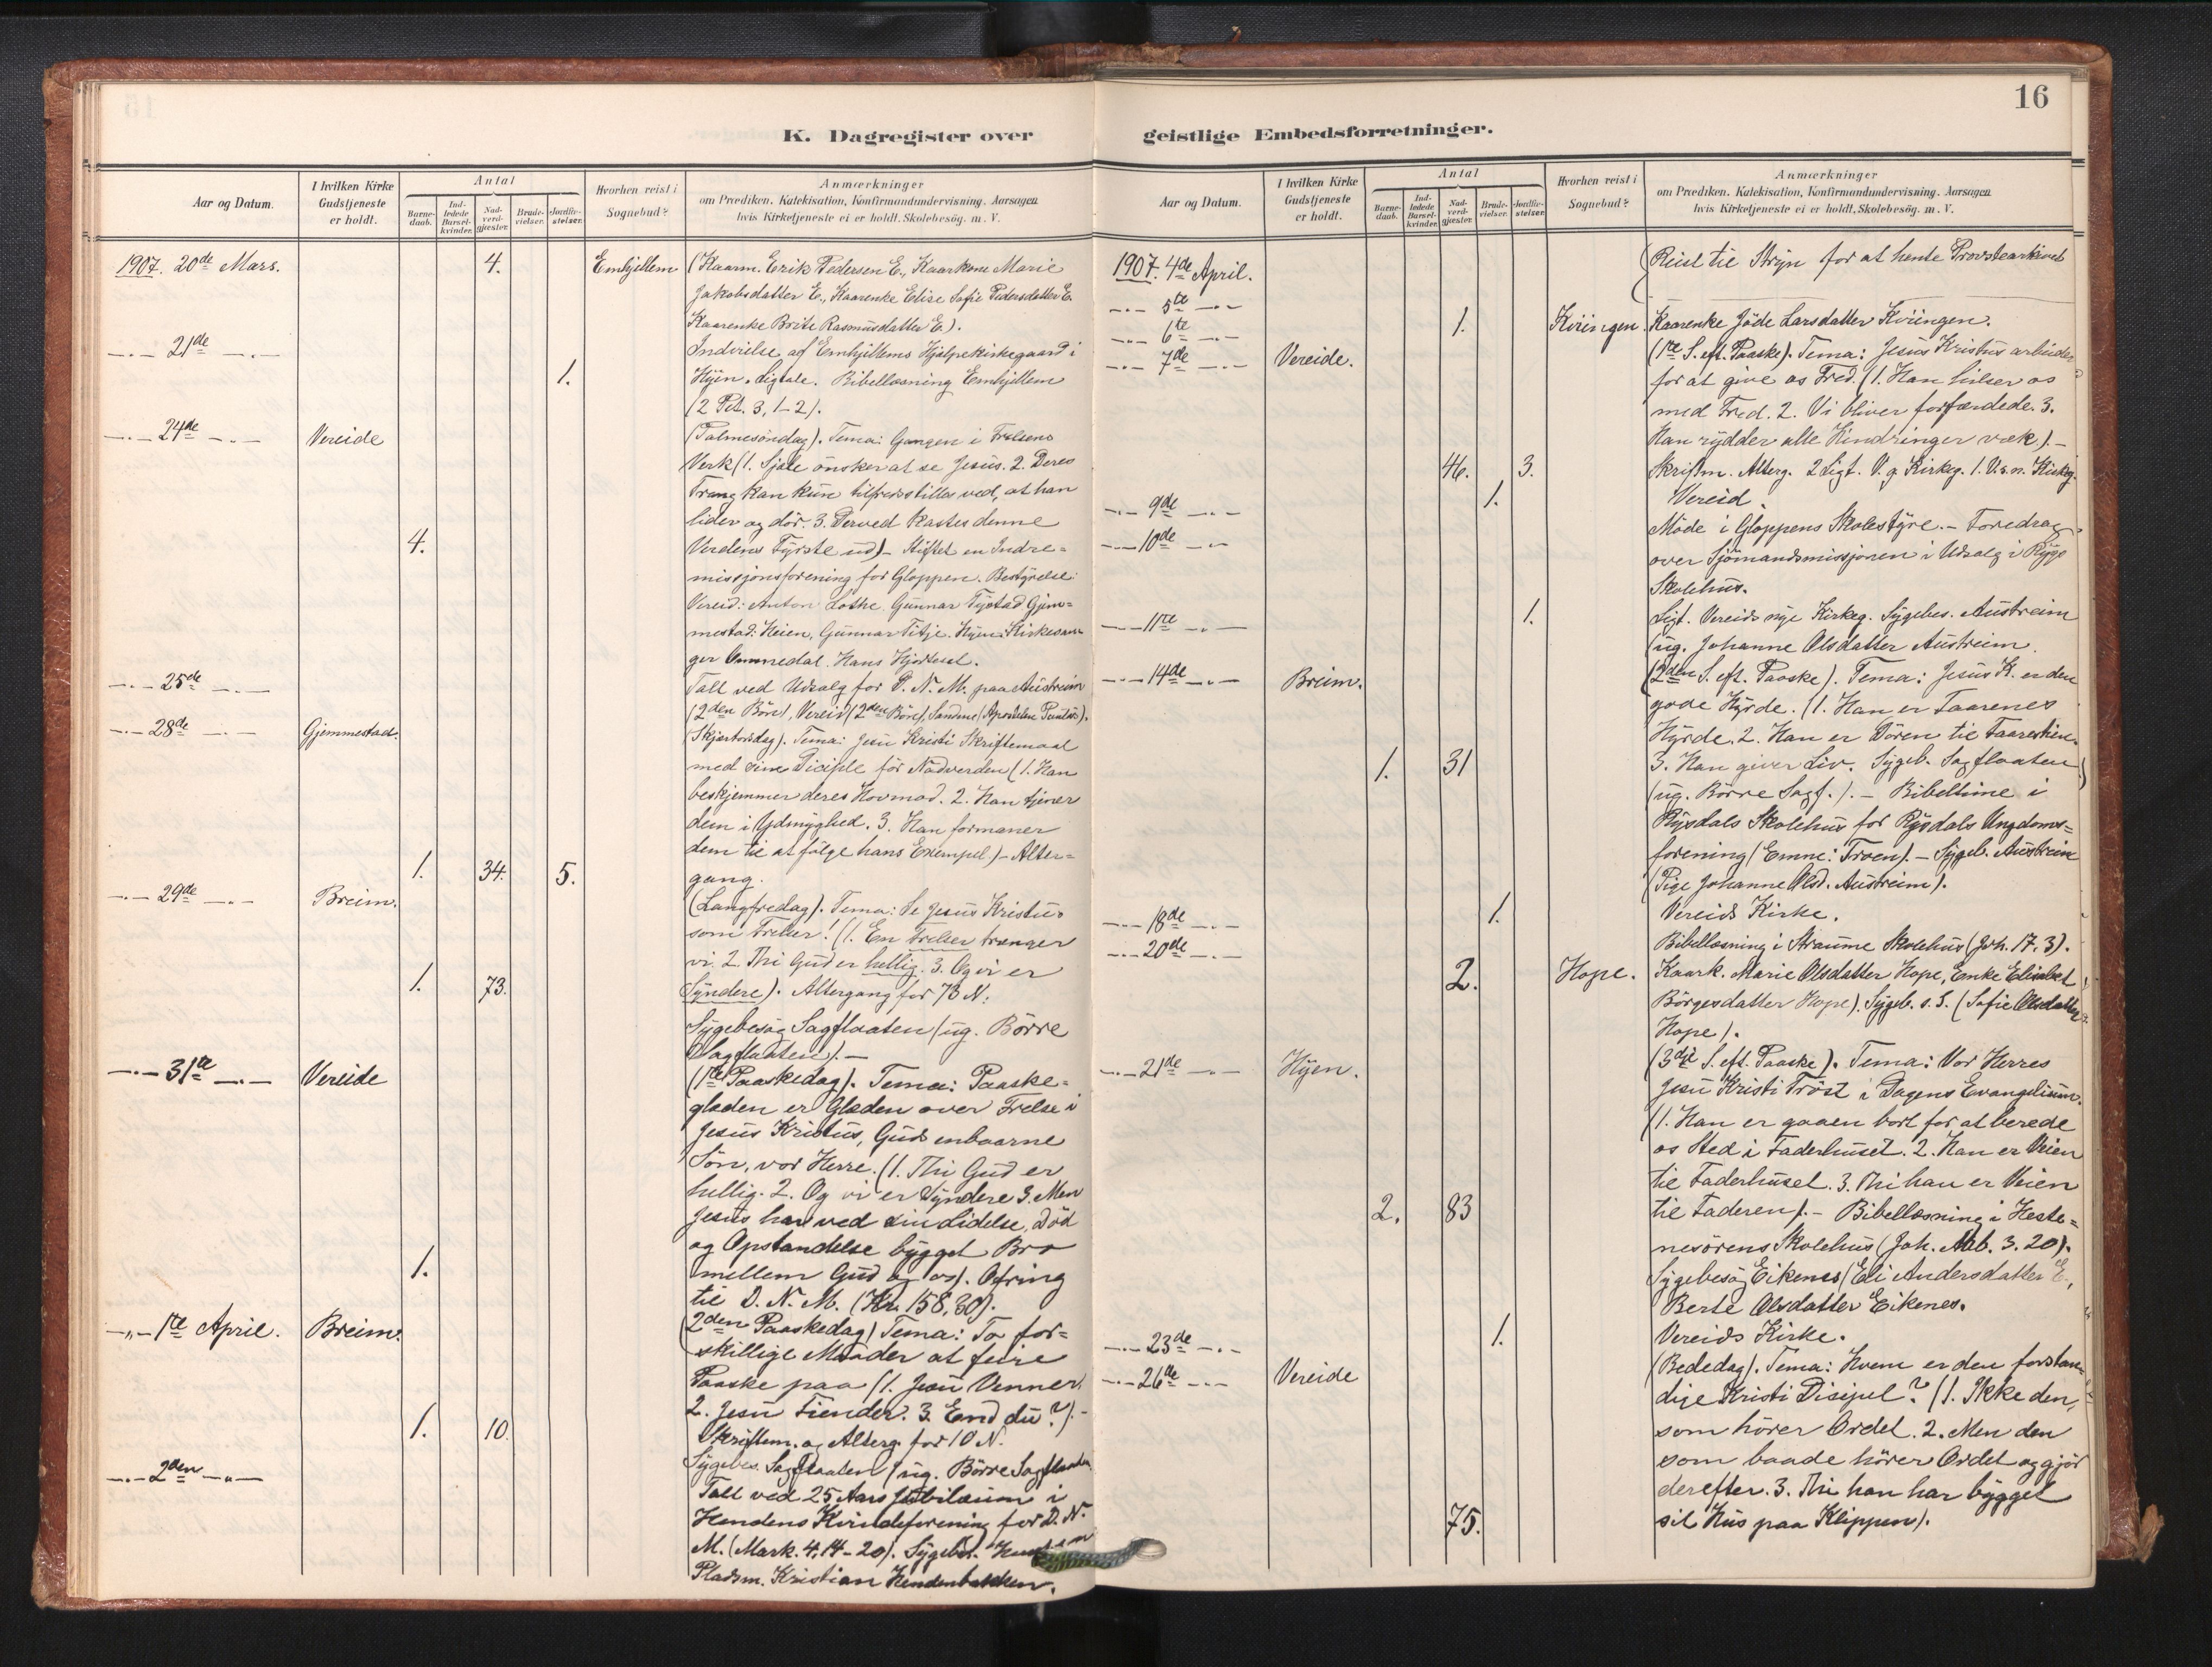 16
K. Dagregister over geistlige Embedsforretninger.
Aar og Datum.
I hvilken Kirke Gudstjeneste er holdt.
Antal
Barne-daab.
Ind-ledede Barsel-kvinder.
Nad-verd-gjæster.
Brude-vielser.
Jordfæ-stelser.
Hvorhen reist i Sognebud?
Anmærkninger
om Prædiken, Katekisation, Konfirmandundervisning. Aarsagen
hvis Kirketjeneste ei er holdt. Skolebesög. m. V.
1907. 20de Mars. 4. Emhjellem (Kaarm. Erik Pedersen E., Kaarkone Marie
Jakobsdatter E., Kaarenke Elise Sofie Pedersdatter E.
Kaarenke Brite Rasmusdatter E.).
—"— 21de —"— Indvielse af Emhjellems Hjælpekirkegaard i
1. Hyen. Ligtale. Bibellæsning Emhjellem
(2 Pet. 3, 1-2).
—"— 24de —"— Vereide (Palmesöndag). Tema: Gangen i Frelsens
Verk (1. Sjæle önsker at se Jesus. 2. Deres
Trang kan kun tilfredsstilles ved, at han
lider og dör. 3. Derved kastes denne
4. Verdens Fyrste ud) – Stiftet en Indre=
missjonsforening for Gloppen. Bestyrelse:
Vereid: Anton Lothe. Gunnar Tystad Gjem=
mestad: Heien, Gunnar Titje. Hyen: Kirkesan=
ger Ommedal. Hans Hjortesæt.
—"— 25de —"— Tall ved Udsalg for D. N. M. paa Austreim
(2den Bön), Vereid (2den Bön), Sandene (Apostelen Paulus).
—"— 28de —"— Gjemmestad. (Skjærtorsdag). Tema: Jesu Kristi Skriftemaal
med sine Diciple för Nadverden (1. Han
beskjemmer deres Hovmod. 2. Han tjener
dem i Ydmyghed. 3. Han formaner
dem til at fölge hans Exempel) – Alter=
1. 34. 5. gang.
—"— 29de —"— Breim. (Langfredag). Tema: Se Jesus Kristus
som Frelser! (1. En Frelser trænger
vi. 2. Thi Gud er hellig. 3. Og vi er
1. 73. Syndere). Altergang for 73 N.
Sygebesög Sagflaaten (ug. Börre
Sagflaaten). —
—"— 31te —"— Vereide (1ste Paaskedag). Tema: Paaske=
glæden er Glæden over Frelse i
Jesus Kristus, Guds enbaarne
Sön, vor Herre. (1. Thi Gud er
hellig. 2. Og vi er Syndere 3. Men
Jesus har ved sin Lidelse, Död
og Opstandelse bygget Bro
1. mellem Gud og os). Ofring
til D. N. M. (Kr. 158,80).
—"— 1te April. Breim. (2den Paaskedag) Tema: To for=
skillige Maader at feire
Paaske paa (1. Jesu Venner.
2. Jesu Fiender. 3. End du?). –
1. 10. Skriftem. og Alterg. for 10 N.
—"— 2den —"— Sygebes. Sagflaaten (ug. Börre Sagflaaten
Tall ved 25 Aars Jubilæum i
Hendens Kvindeforening for D. N.
M. (Mark. 4, 14-20). Sygebes.
Pladsm. Kristian Hendenbakken.
Aar og Datum.
I hvilken Kirke Gudstjeneste er holdt.
Antal
Barne-daab.
Ind-ledede Barsel-kvinder.
Nad-verd-gjæster.
Brude-vielser.
Jordfæ-stelser.
Hvorhen reist i Sognebud?
Anmærkninger
om Prædiken. Katekisation, Konfirmandundervisning. Aarsagen
hvis Kirketjeneste ei er holdt, Skolebesög. m. V.
1907. 4de April. (Reist til Stryn for at hente Provstearkivet
—"— 5te —"—
—"— 6te —"— 1. Kviingen. Kaarenke Jöde Larsdatter Kviingen.
—"— 7de —"— Vereide. (1te S. eft. Paaske). Tema: Jesus Kristus arbeider
for at give os Fred. (1. Han hilser os
med Fred. 2. Vi bliver forfærdede. 3.
Han rydder alle Hindringer væk). –
46. 3. Skriftm. Alterg. 2 Ligt. V. g. Kirkeg. 1. V.s n. Kirkeg.
—"— 9de —"— 1. Vereid.
—"— 10de —"— Möde i Gloppens Skolestyre. – Foredrag
over Sjömandsmissjonen i Udsalg i Rygs
Skolehus.
—"— 11te —"— 1. Ligt. Vereids nye Kirkeg. Sygebes. Austreim
(ug. Johanne Olsdatter Austreim.
—"— 14de —"— Breim. (2den S. eft. Paaske). Tema: Jesus K. er den
gode Hyrde. (1. Han er Faarenes
Hyrde. 2. Han er Dören til Faarestien.
1. 31 3. Han giver Liv. Sygeb. Sagflaaten
(ug. Börre Sagf.). – Bibeltime i
Rysdals Skolehus for Rysdals Ungdoms=
forening (Emne: Troen). – Sygeb. Austreim
(Pige Johanne Olsd. Austreim).
—"— 18de —"— 1. Vereids Kirke.
—"— 20de —"— Bibellæsning i Straume Skolehus (Joh. 17, 3).
2. Hope. Kaark. Marie Olsdatter Hope, Enke Elisabet
Börgesdatter Hope). Sygeb. s. S. (Sofie Olsdatter
Hope).
—"— 21de —"— Hyen. (3die S. eft. Paaske). Tema: Vor Herres
Jesu Kristi Tröst i Dagens Evangelium.
(1. Han er gaaen bort for at berede
os Sted i Faderhuset. 2. Han er Veien
til Faderhuset. 3. Thi han er Veien
2. 83 til Faderen). – Bibellæsning i Heste=
nesörens Skolehus (Joh. Aab. 3. 20).
Sygebesög Eikenes (Eli Andersdatter E.,
Berte Olsdatter Eikenes.
—"— 23de —"— 1. Vereids Kirke.
—"— 26de —"— Vereide (Bededag). Tema: Hvem er den forstæn=
dige Kristi Disipel? (1. Ikke den,
som hörer Ordet. 2. Men den
som baade hörer Ordet og gjör
derefter. 3. Thi han har bygget
75. sit Hus paa Klippen).